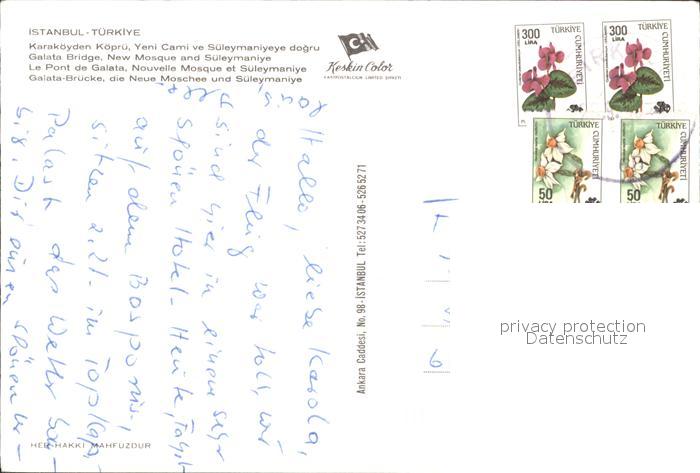 İSTANBUL - TÜRKİYE
Karaköyden Köprü, Yeni Cami ve Süleymaniyeye doğru
Galata Bridge, New Mosque and Süleymaniye
Le Pont de Galata, Nouvelle Mosque et Süleymaniye
Galata-Brücke, die Neue Moschee und Süleymaniye
Keskin Color
KARTPOSTALCILIK LIMITED ŞİRKETİ
300
LİRA
TÜRKİYE
CUMHURİYETİ
300
LİRA
TÜRKİYE
CUMHURİYETİ
TÜRKİYE
CUMHURİYETİ
50
LİRA
TÜRKİYE
CUMHURİYETİ
50
LİRA
Hallo, liebe Karola,
der Flug war toll, wir
sind hier in einem sehr
schönen Hotel - Heute,
auf dem Bosporus,
sitzen z.Zt. im Topkapi
Palast das Wetter
Ankara Caddesi, No. 98 - İSTANBUL Tel: 5273406 - 5265271
6
privacy protection
Datenschutz
HER HAKKI MAHFUZDUR